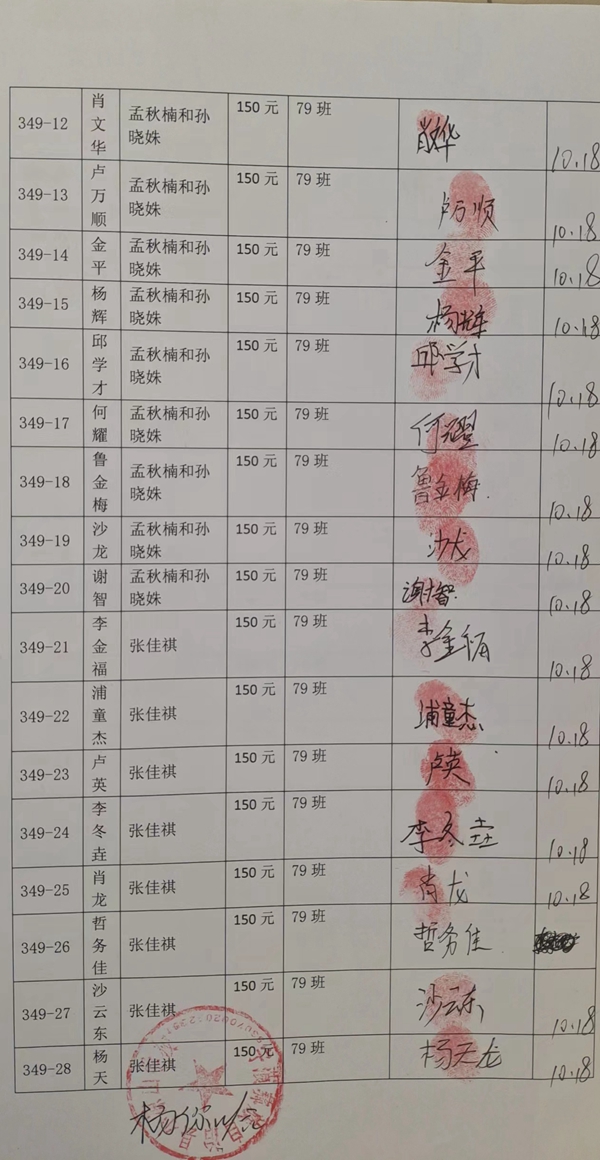 349-12 肖文华 孟秋楠和孙晓姝 150元 79班 肖文华 10.18
349-13 卢万顺 孟秋楠和孙晓姝 150元 79班 卢万顺 10.18
349-14 金平 孟秋楠和孙晓姝 150元 79班 金平 10.18
349-15 杨辉 孟秋楠和孙晓姝 150元 79班 杨辉 10.18
349-16 邱学才 孟秋楠和孙晓姝 150元 79班 邱学才 10.18
349-17 何耀 孟秋楠和孙晓姝 150元 79班 何耀 10.18
349-18 鲁金梅 孟秋楠和孙晓姝 150元 79班 鲁金梅 10.18
349-19 沙龙 孟秋楠和孙晓姝 150元 79班 沙龙 10.18
349-20 谢智 孟秋楠和孙晓姝 150元 79班 谢智 10.18
349-21 李金福 张佳祺 150元 79班 李金福 10.18
349-22 浦童杰 张佳祺 150元 79班 浦童杰 10.18
349-23 卢英 张佳祺 150元 79班 卢英 10.18
349-24 李冬垚 张佳祺 150元 79班 李冬垚 10.18
349-25 肖龙 张佳祺 150元 79班 肖龙 10.18
349-26 哲务佳 张佳祺 150元 79班 哲务佳
349-27 沙云东 张佳祺 150元 79班 沙云东 10.18
349-28 杨天 张佳祺 150元 79班 杨天龙 10.18